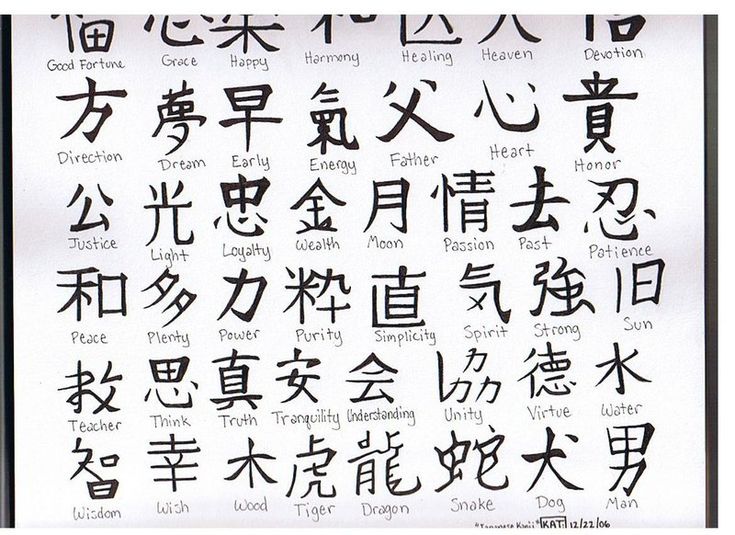 福 楽 和
Good Fortune Grace Happy Harmony Healing Heaven Devotion
方 夢 早 氣 父 心 貴
Direction Dream Early Energy Father Heart Honor
公 光 忠 金 月 情 去 忍
Justice Light Loyalty Wealth Moon Passion Past Patience
和 多 力 粋 直 気 強 旧
Peace Plenty Power Purity Simplicity Spirit Strong Sun
救 思 真 安 会 協 德 水
Teacher Think Truth Tranquility Understanding Unity Virtue Water
智 幸 木 虎 龍 蛇 犬 男
Wisdom Wish Wood Tiger Dragon Snake Dog Man
"Japanese Kanji" KAT. 12/22/06